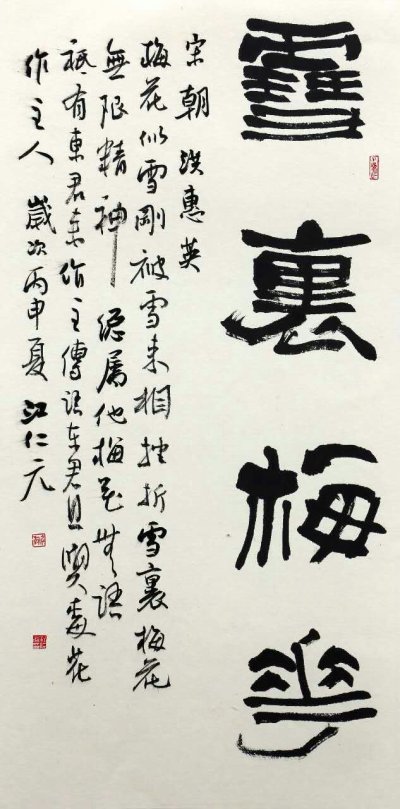 雪裏梅花
宋朝 洪惠英
梅花似雪剛被雪来相挫折雪裏梅花
無限精神總属他梅花無語
祇有東君来作主傳語东君且與梅花
作主人 歲次丙申夏 江仁元